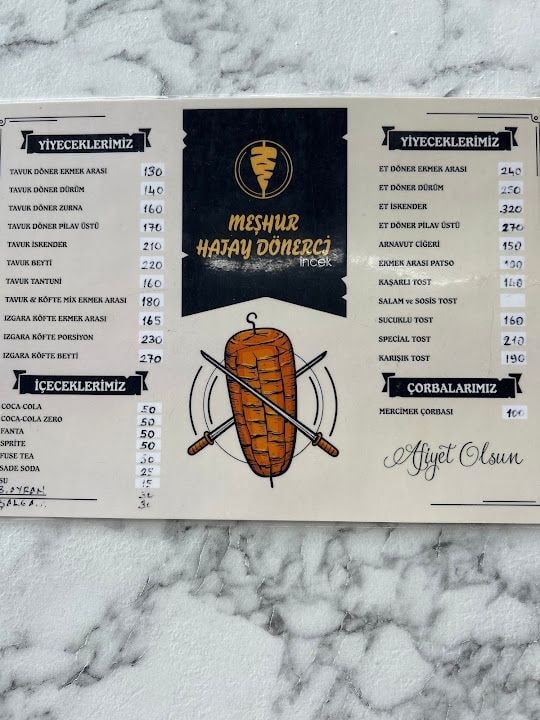 YİYECEKLERİMİZ
TAVUK DÖNER EKMEK ARASI 130
TAVUK DÖNER DÜRÜM 140
TAVUK DÖNER ZURNA 160
TAVUK DÖNER PİLAV ÜSTÜ 170
TAVUK İSKENDER 210
TAVUK BEYTİ 220
TAVUK TANTUNİ 160
TAVUK & KÖFTE MİX EKMEK ARASI 180
IZGARA KÖFTE EKMEK ARASI 165
IZGARA KÖFTE PORSİYON 230
IZGARA KÖFTE BEYTİ 270
İÇECEKLERİMİZ
COCA-COLA 50
COCA-COLA ZERO 50
FANTA 50
SPRİTE 50
FUSE TEA
SADE SODA 25
SU 15
AYRAN
ŞALGA...
MEŞHUR
HATAY DÖNERCİ
incek
YİYECEKLERİMİZ
ET DÖNER EKMEK ARASI 240
ET DÖNER DÜRÜM 250
ET İSKENDER 320
ET DÖNER PİLAV ÜSTÜ 270
ARNAVUT CİĞERİ 150
EKMEK ARASI PATSO
KAŞARLI TOST 140
SALAM ve SOSİS TOST
SUCUKLU TOST 160
SPECİAL TOST 210
KARIŞIK TOST 190
ÇORBALARIMIZ
MERCİMEK ÇORBASI 100
Afiyet Olsun